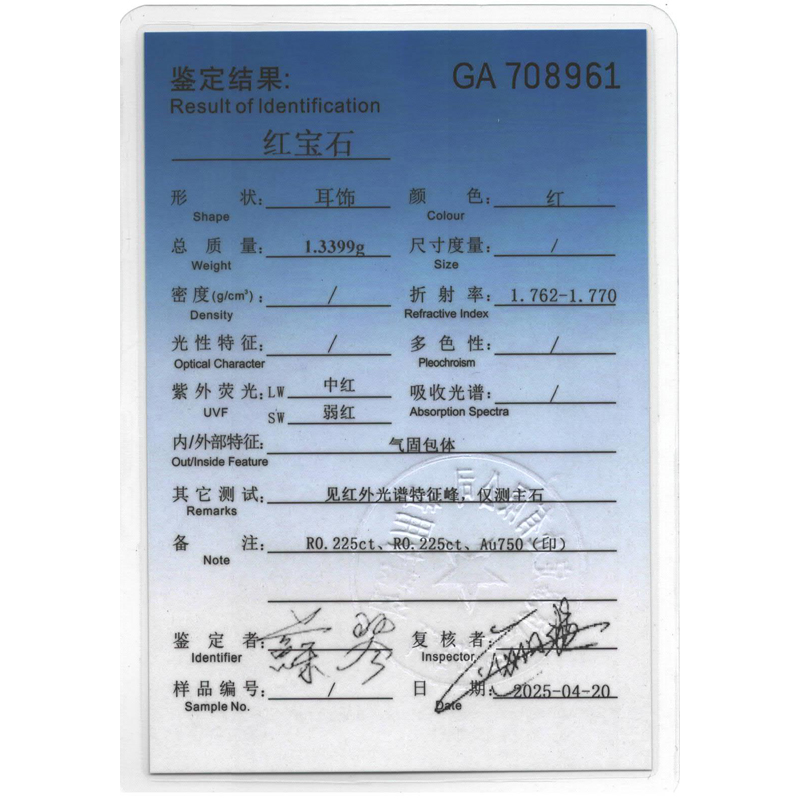 鉴定结果: GA 708961
Result of Identification
红宝石
形 状: 耳饰 颜 色: 红
Shape Colour
总 质 量: 1.3399g 尺寸度量: /
Weight Size
密度(g/cm³): / 折 射 率: 1.762-1.770
Density Refractive Index
光性特征: / 多 色 性: /
Optical Character Pleochroism
紫外荧光: LW 中红 吸收光谱: /
UVF SW 弱红 Absorption Spectra
内/外部特征: 气固包体
Out/Inside Feature
其它测试: 见红外光谱特征峰，仅测主石
Remarks
备 注: R0.225ct、R0.225ct、Au750（印）
Note
鉴 定 者: 复 核 者:
Identifier Inspector
样品编号: / 日 期: 2025-04-20
Sample No. Date